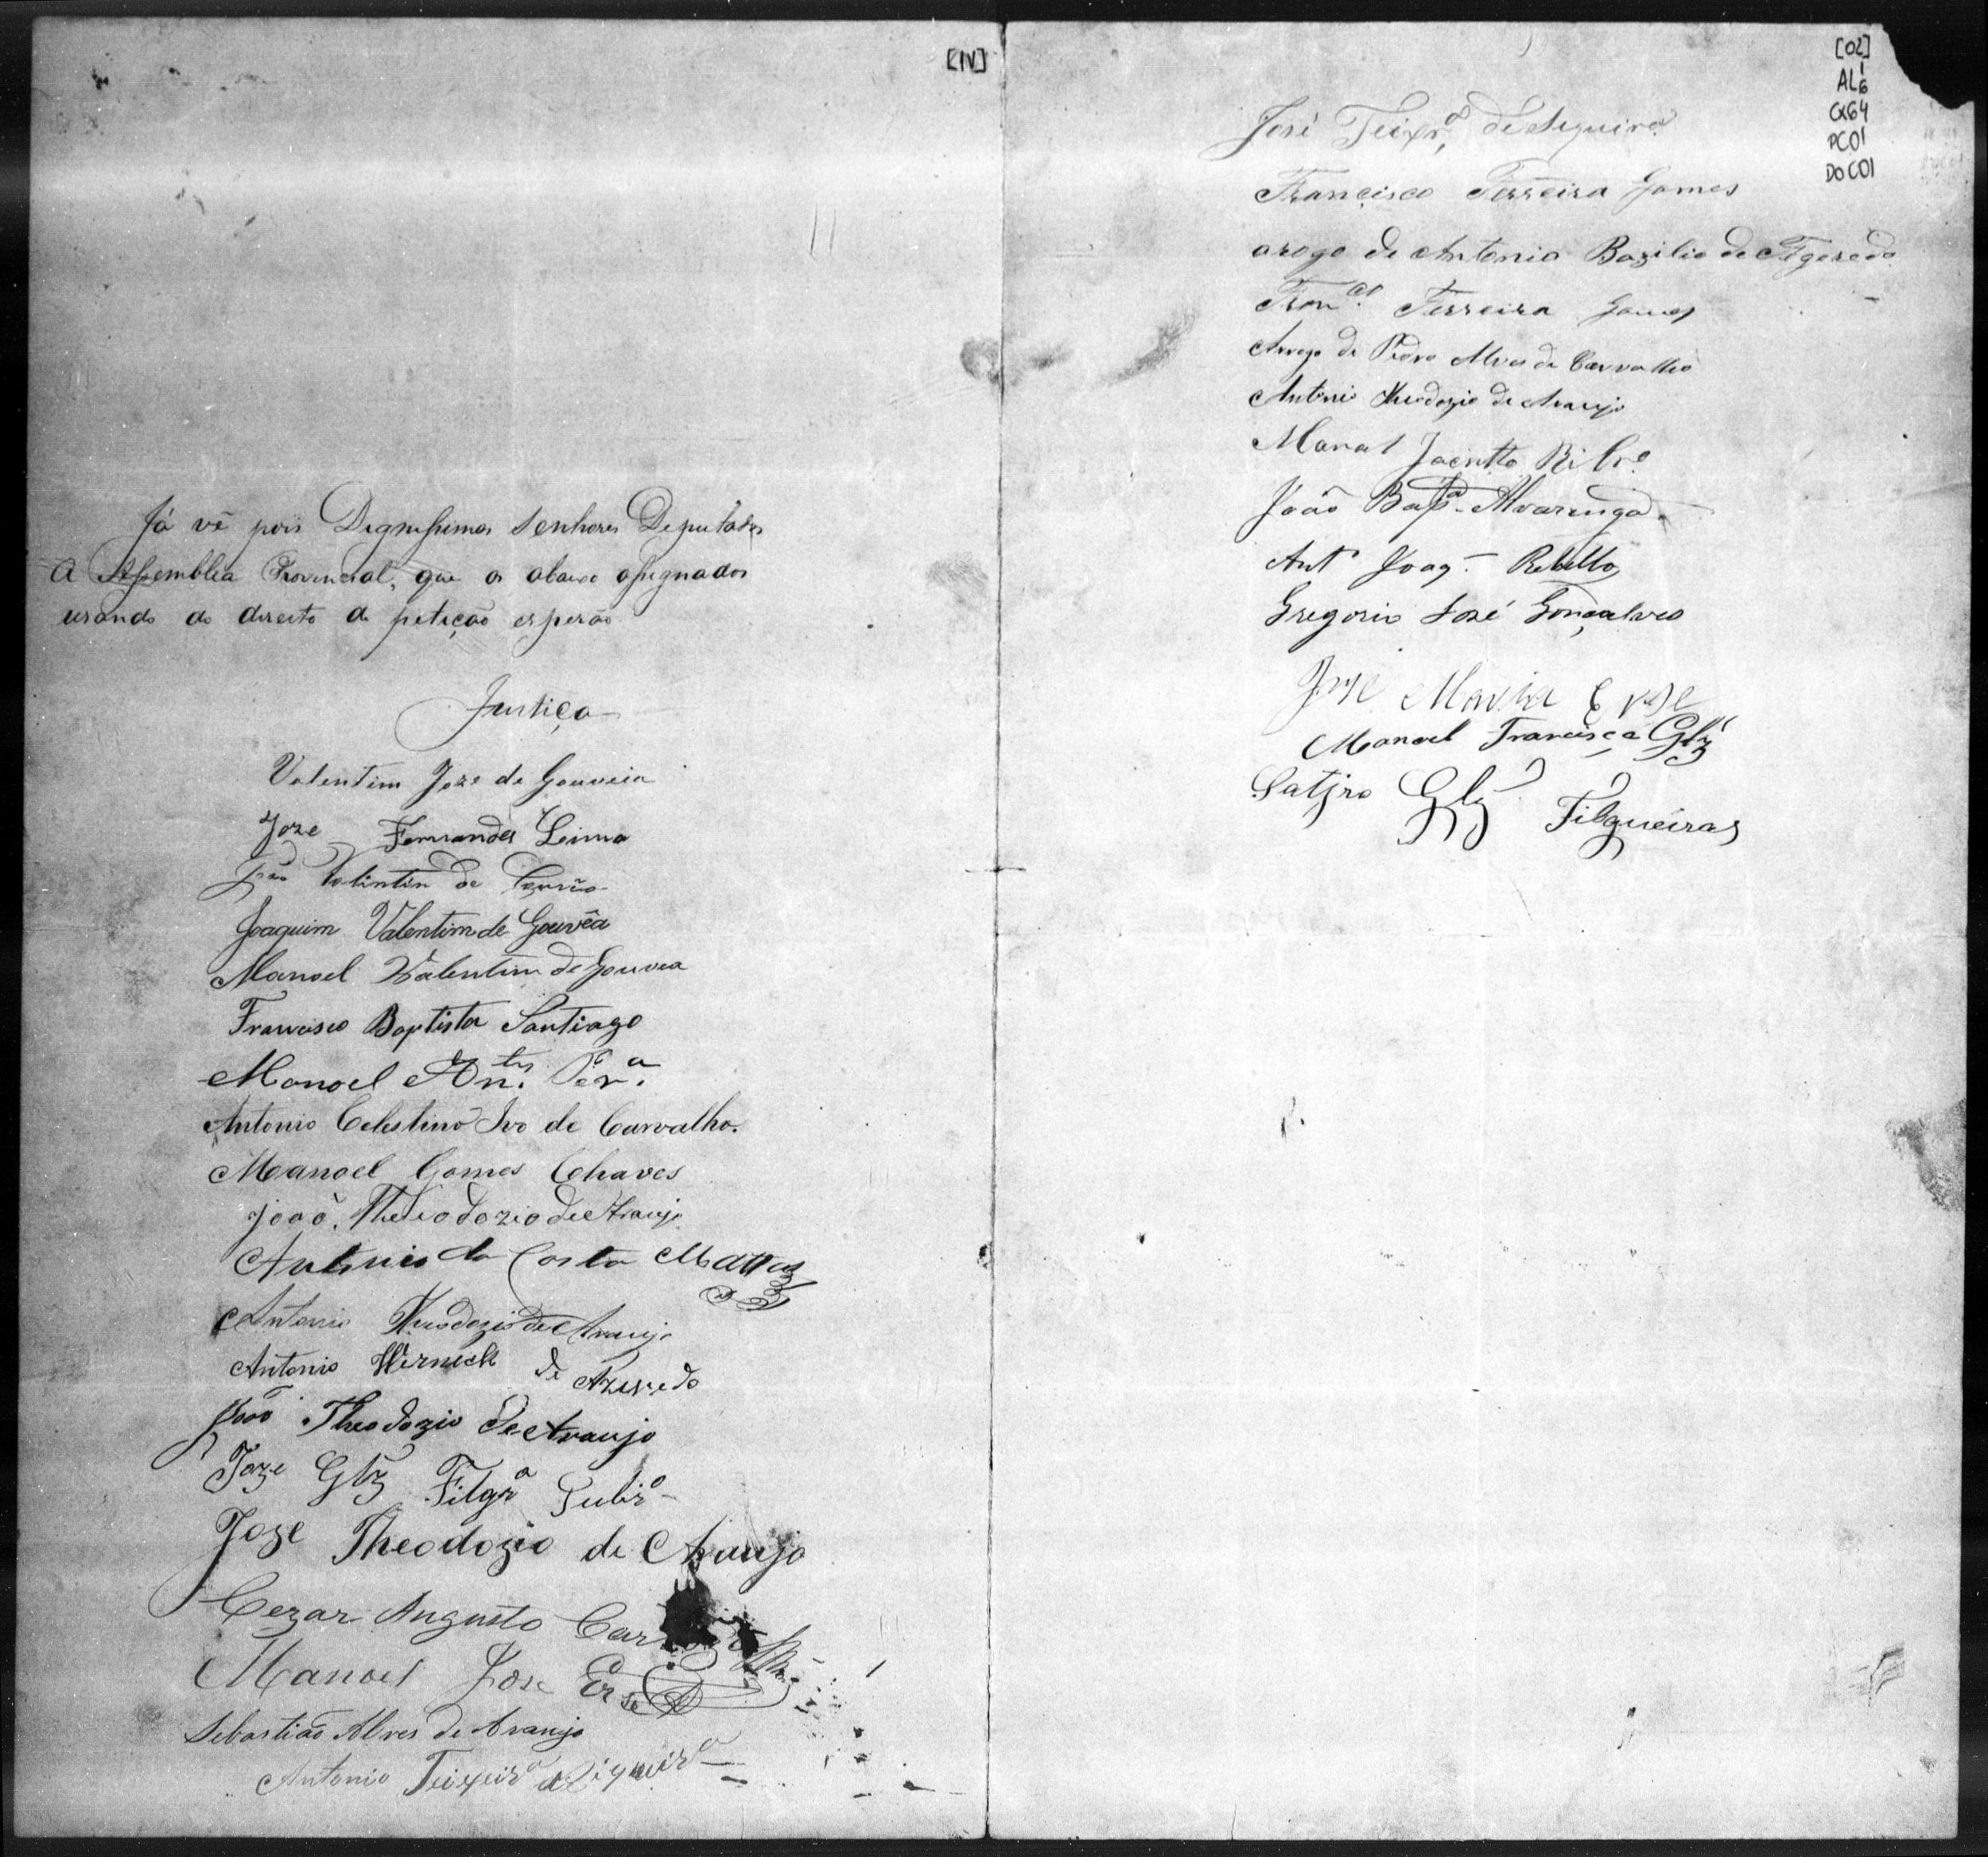 [1V]
Já vê pois Dignissimos Senhores Deputados
a Assemblea Provincial, que os abaixo assignados
usando do direito de petição esperão
Justiça
Valentim Joze de Gouveia
Joze Fernandes Leima
João Valintin de
Joaquim Valentim de Gouvêa
Manoel Valentim de Gouvea
Francisco Baptista Santiago
Manoel An.tes Per.a
Antonio Celestino Ivo de Carvalho.
Manoel Gomes Chaves
João Theodozio de Araujo
Antonio da Costa Mattos
Antonio Theodozio de Araujo
Antonio Werneck de Azevedo
João Theodozio de Araujo
Joze Glz Filgr.a
Joze Theodozio de Araujo
Cezar Augusto
Manoel Jose
Sebastião Alves de Araujo
Antonio Teixeir.a de Siqueir.a
[02]
AL1
6
CX64
PC01
DOC01
José Teixr.a de Sequeira
Francisco Ferreira Gomes
arogo de Antonio Bazilio de Figeredo
Fran.co Ferreira Gomes
Arrogo de Pedro Alves de Carvalho
Antonio Theodozio de Araujo
Manal Jacintto Ribr.o
João Bap.ta Alvarenga
Ant.o Joaq.m Rebello
Gregorio José Gonçalves
Jose Maria
Manoel Francisco Glz
Satjro Glz Filgueiras